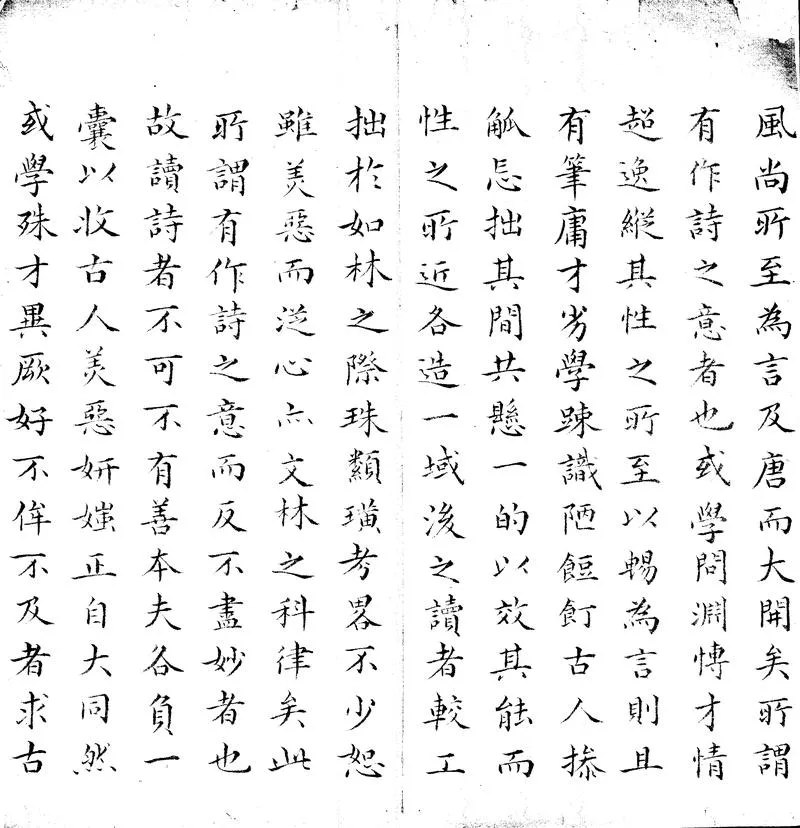 風尚所至為言及唐而大開矣所謂
有作詩之意者也或學問淵博才情
超逸縱其性之所至以暢為言則且
有筆庸才劣學踈識陋餖飣古人搽
觚忌拙其間共懸一的以效其能而
性之所近各造一域後之讀者較工
拙於如林之際珠纇璜考畧不少恕
雖美惡而從心亦文林之科律矣此
所謂有作詩之意而反不盡妙者也
故讀詩者不可不有善本夫各負一
囊以收古人美惡妍媸正自大同然
或學殊才異厥好不侔不及者求古